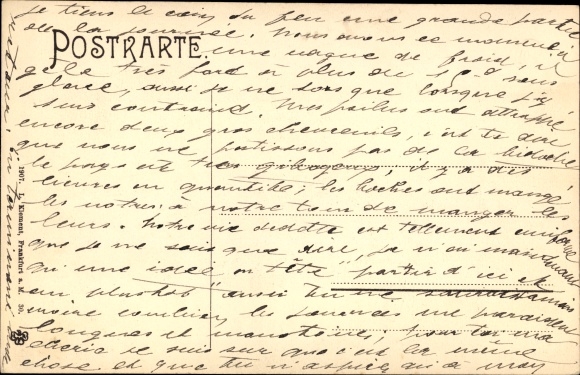 je tiens le coin du feu une grande partie
de la journée. Nous avons en ce moment ici
POSTKARTE.
une vague de froid, il
gèle très fort à plus de 15° sous
glace, aussi je ne sors que lorsque j'y
suis contraint. Nos poilus ont attrapé
encore deux gros chevreuils, c'est te dire
que nous ne pâtissons pas de la
le pays est très giboyeux, il y a des
lièvres en quantité, les boches ont mangé
les nôtres à notre tour de manger les
leurs. Notre vie dedette est tellement uniforme
que je ne sais que dire, je n'ai maintenant
qu'une idée en tête partir d'ici et
au plus tôt aussi tu ne
croire combien les journées me paraissent
longues et monotones; pour toi ma
chérie je suis sur que c'est la même
chose et que tu n'aspires qu'à mon
retour, en terminant
1907. L. Klement, Frankfurt a. M. 10,